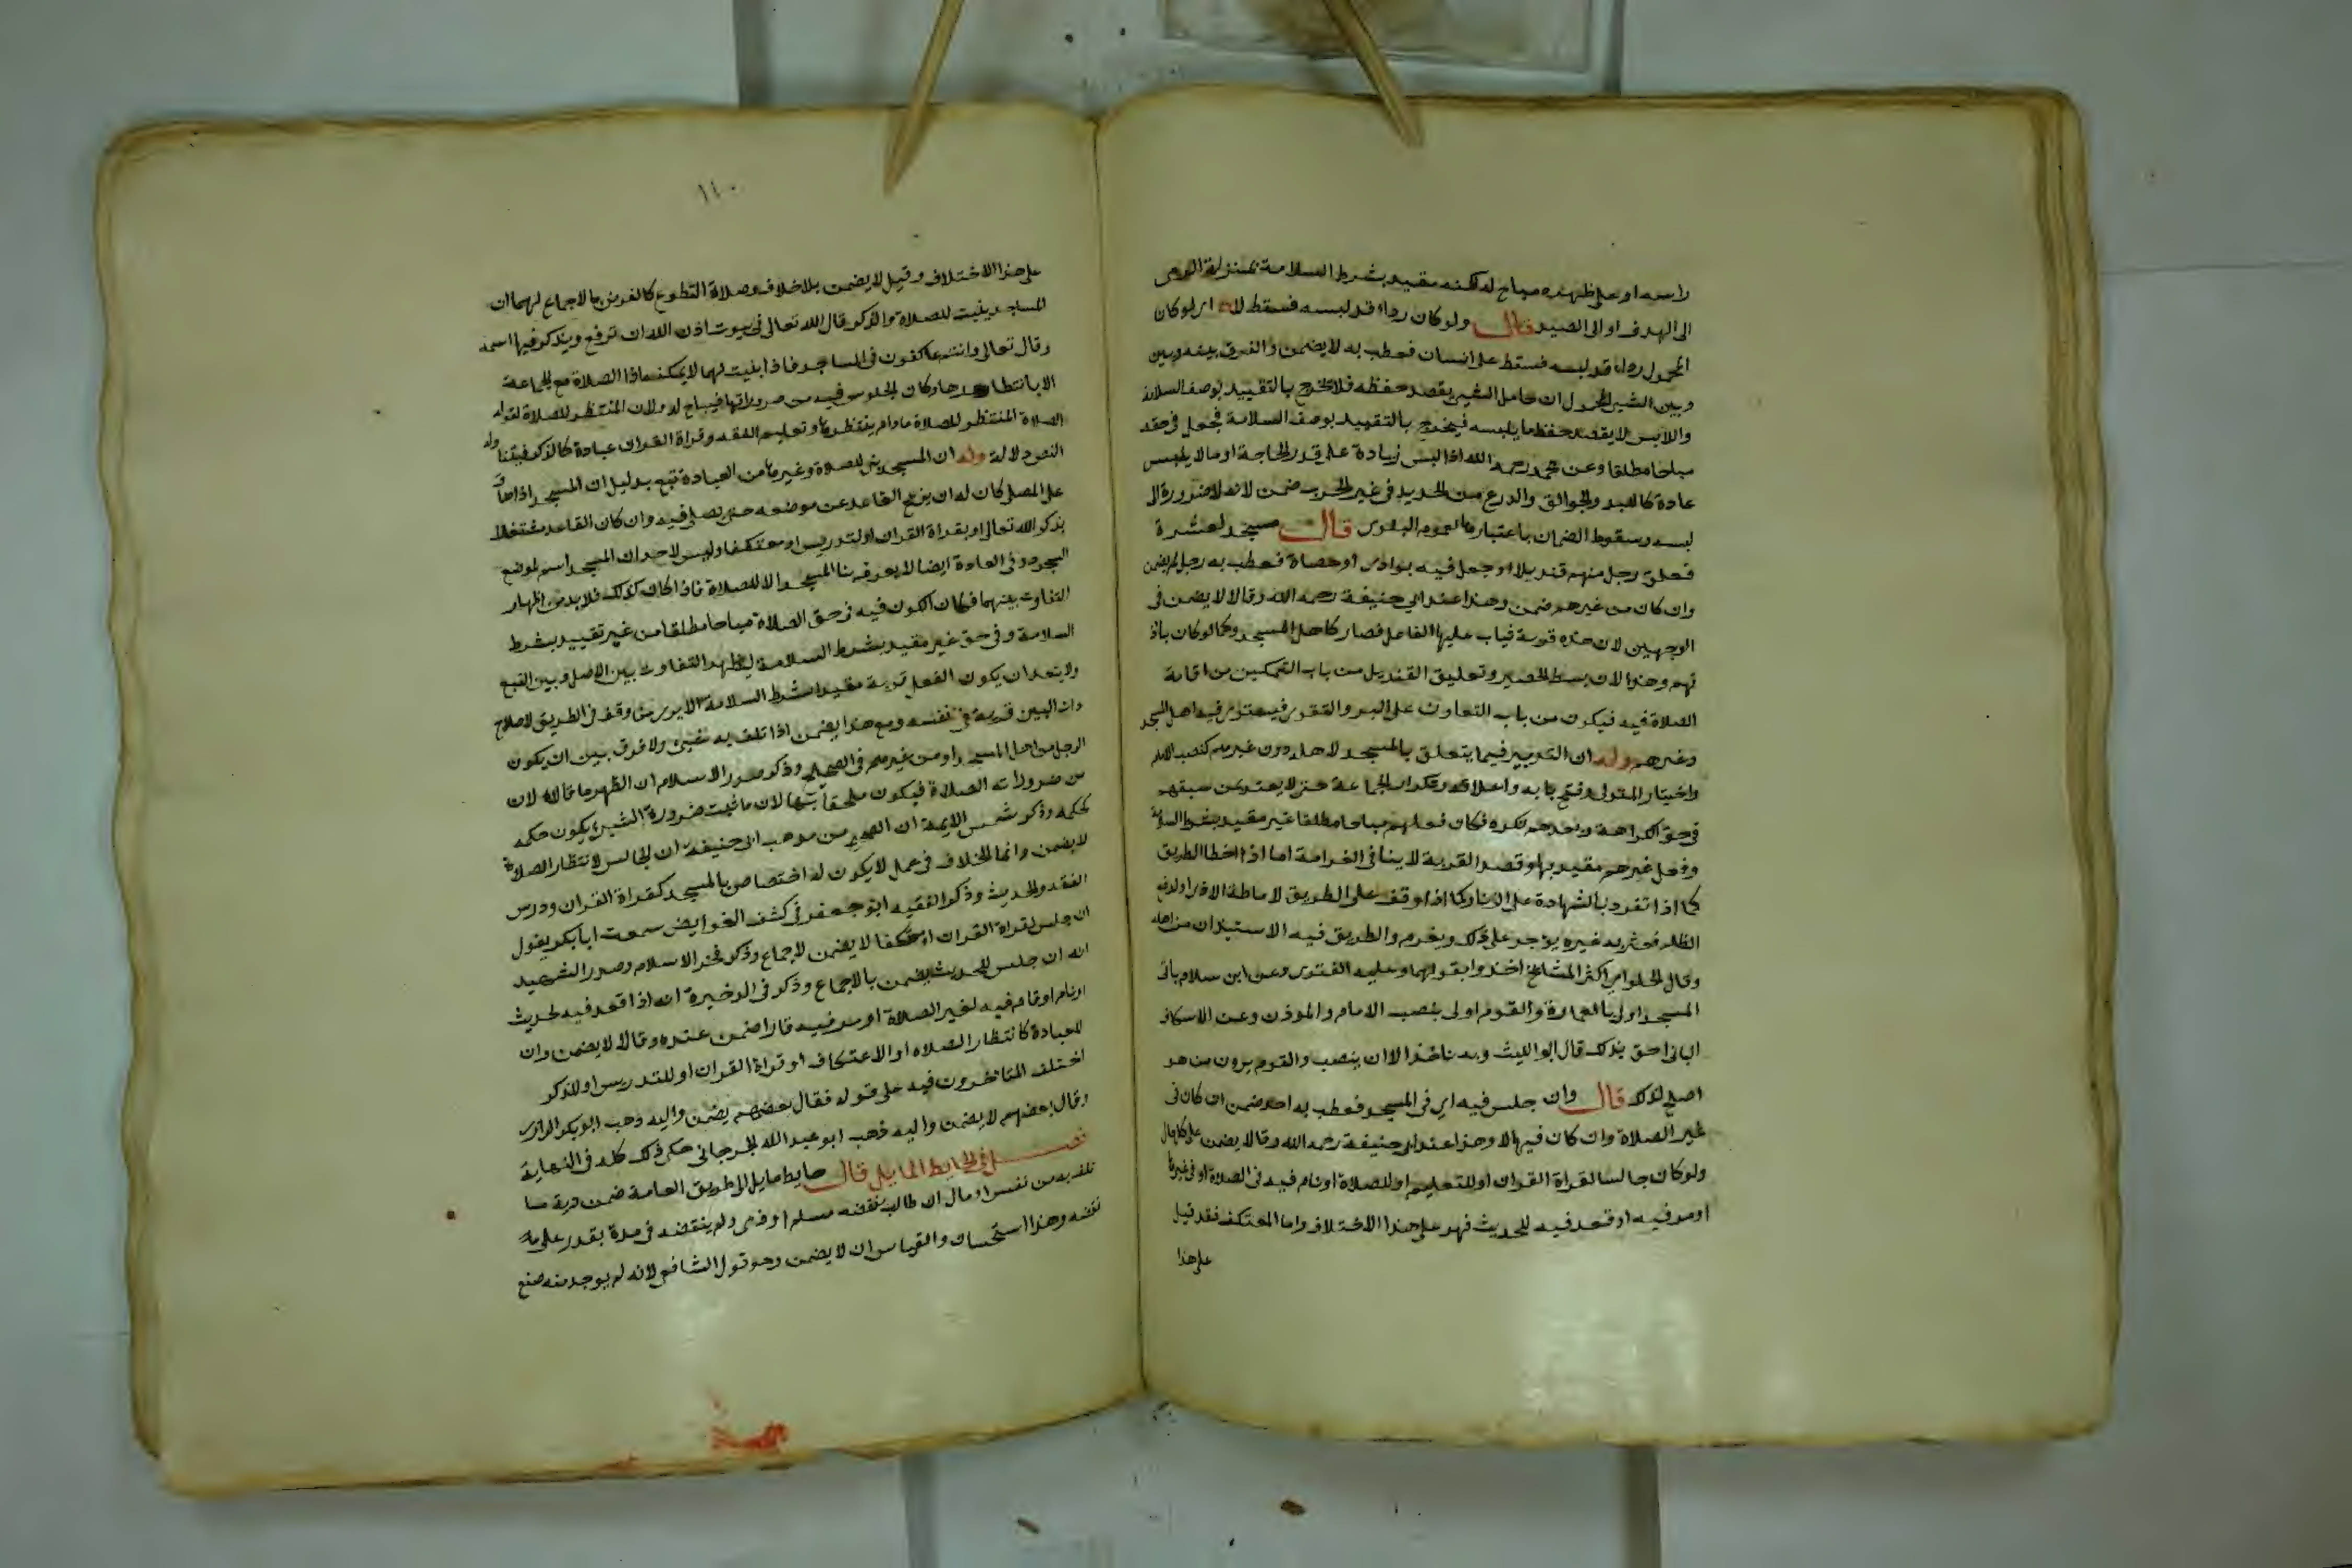 راسه او على ظهره مباح له لكنه مقيد بشرط السلامة بمنزلة الرمى
الى الهدف او الى الصيد قال ولو كان رداء قد لبسه فسقط لا اى لو كان
المحمول رداء قد لبسه فسقط على انسان فعطب به لا يضمن والفرق بينه وبين
وبين الشيئ المحمول ان حامل الشيئ يقصد حفظه فلا يخرج بالتقييد بوصف السلامة
واللابس لا يقصد حفظ ما يلبسه فيخرج بالتقييد بوصف السلامة فجعل فى حقه
مباحا مطلقا وعن محمد رحمه الله اذا لبس زيادة على قدر الحاجة او ما لا يلبس
عادة كاللبد والجوالق والدرع من الحديد فى غير الحرب ضمن لانه لا ضرورة الى
لبسه وسقوط الضمان باعتبارها لعموم البلوى قال مسجد لعشيرة
فعلق رجل منهم قنديلا او جعل فيه بوارى او حصاة فعطب به رجل لم يضمن
وان كان من غيرهم ضمن وهذا عند ابى حنيفة رحمه الله وقالا لا يضمن فى
الوجهين لان هذه قربة فيثاب عليها الفاعل فصار كاهل المسجد وكما لو كان باذ
نهم وهذا لان بسط الحصير وتعليق القنديل من باب التمكين من اقامة
الصلاة فيه فيكون من باب التعاون على البر والتقوى فيستوى فيه اهل المسجد
وغيرهم وله ان التدبير فيما يتعلق بالمسجد لاهله دون غيرهم كنصب الامام
واختيار المتولى وفتح بابه واغلاقه وتكرار الجماعة حتى لا يعتد بمن سبقهم
فى حق الكراهة وبعدهم تكره فكان فعلهم مباحا مطلقا غير مقيد بشرط السلامة
وفعل غيرهم مقيد بها وقصد القربة لا ينافى الغرامة اما اذا اخطا الطريق
كما اذا تفرد بالشهادة على الزنا وكما اذا وقف على الطريق لاماطة الاذى او لدفع
الظلم فعثر به غيره يؤجر على ذلك ويغرم والطريق فيه الاستيذان من اهله
وقال الحلوانى اكثر المشائخ اخذوا بقولهما وعليه الفتوى وعن ابن سلام بانى
المسجد اولى بالعمارة والقوم اولى بنصب الامام والموذن وعن الاسكاف
البانى احق بذلك قال ابو الليث وبه ناخذ الا ان ينصب والقوم يرون من هو
اصلح لذلك قال وان جلس فيه اى فى المسجد فعطب به احد ضمن ان كان فى
غير الصلاة وان كان فيها لا وهذا عند ابى حنيفة رحمه الله وقالا لا يضمن على كل حال
ولو كان جالسا لقراة القران او للتعليم او للصلاة او نام فيه فى الصلاة او فى غيرها
او مر فيه او قعد فيه للحديث فهو على هذا الاختلاف واما المعتكف فقد قيل
على هذا
١١٠
على هذا الاختلاف وقيل لا يضمن بلا خلاف وصلاة التطوع كالفرض بالاجماع لهما ان
المساجد بنيت للصلاة والذكر قال الله تعالى فى بيوت اذن الله ان ترفع ويذكر فيها اسمه
وقال تعالى وانتم عاكفون فى المساجد فاذا بنيت لهما لا يمكنه اذا الصلاة مع الجماعة
الا بانتظارها وكان الجلوس فيه من ضروراتها فيباح له ولان المنتظر للصلاة لقوله
الصلاة المنتظر للصلاة ما دام ينتظرها وتعليم الفقه وقراة القران عبادة كالذكر
النص دلالة وله ان المسجد بنى للصلاة وغيرها من العبادة تبع بدليل ان المسجد اذا ضاق
على المصلى كان له ان يزعج القاعد عن موضعه حتى يصلى فيه وان كان القاعد مشتغلا
بذكر الله تعالى او بقراة القران او لتدريس او معتكفا وليس لاحد ان المسجد اسم لموضع
السجود وفى العادة ايضا لا يعرف بنا المسجد الا للصلاة فاذا كان كذلك فلا بد من اظهار
التفاوت بينهما فكان الكون فيه فى حق الصلاة مباحا مطلقا من غير تقييد بشرط
السلامة وفى حق غير مقيد بشرط السلامة ليظهر التفاوت بين الاصل وبين التبع
ولا يبعد ان يكون الفعل قربة مقيدا بشرط السلامة الا يرى من وقف فى الطريق لاصلاح
ذات البين قربة فى نفسه ومع هذا يضمن اذا تلف به شيئ ولا فرق بين ان يكون
الرجل من اهل المسجد او من غيرهم فى الصحيح وذكر صدر الاسلام ان الظهر ما قالاه لان
من ضرورات الصلاة فيكون ملحقا بها لان ما ثبت ضرورة الشيئ يكون حكمه
كحكمه وذكر شمس الايمة ان الصحيح من مذهب ابى حنيفة ان الجالس لانتظار الصلاة
لا يضمن وانما الخلاف فى عمل لا يكون له اختصاص بالمسجد كقراة القران ودرس
الفقه والحديث وذكر الفقيه ابو جعفر فى كشف الغوامض سمعت ابا بكر يقول
ان جلس لقراة القران او معتكفا لا يضمن لاجماع وذكر فخر الاسلام وصدر الشهيد
انه ان جلس للحديث يضمن بالاجماع وذكر فى الذخيرة انه اذا قعد فيه لحديث
او نام او قام فيه لغير الصلاة او مر فيه مارا ضمن عنده وقالا لا يضمن وان
للعبادة كانتظار الصلاه او الاعتكاف او قراة القران او للتدريس او للذكر
اختلف المتاخرون فيه على قوله فقال بعضهم يضمن واليه ذهب ابو بكر الرازى
وقال بعضهم لا يضمن واليه ذهب ابو عبد الله الجرجانى حكى ذلك كله فى النهاية
فصل فى الحايط المايل قال حايط مايل الى طريق العامة ضمن ربه ما
تلف به من نفس او مال ان طالب بنقضه مسلم او ذمى ولم ينقضه فى مدة يقدر على
نقضه وهذا استحسان والقياس ان لا يضمن وهو قول الشافعى لانه لم يوجد منه صنع